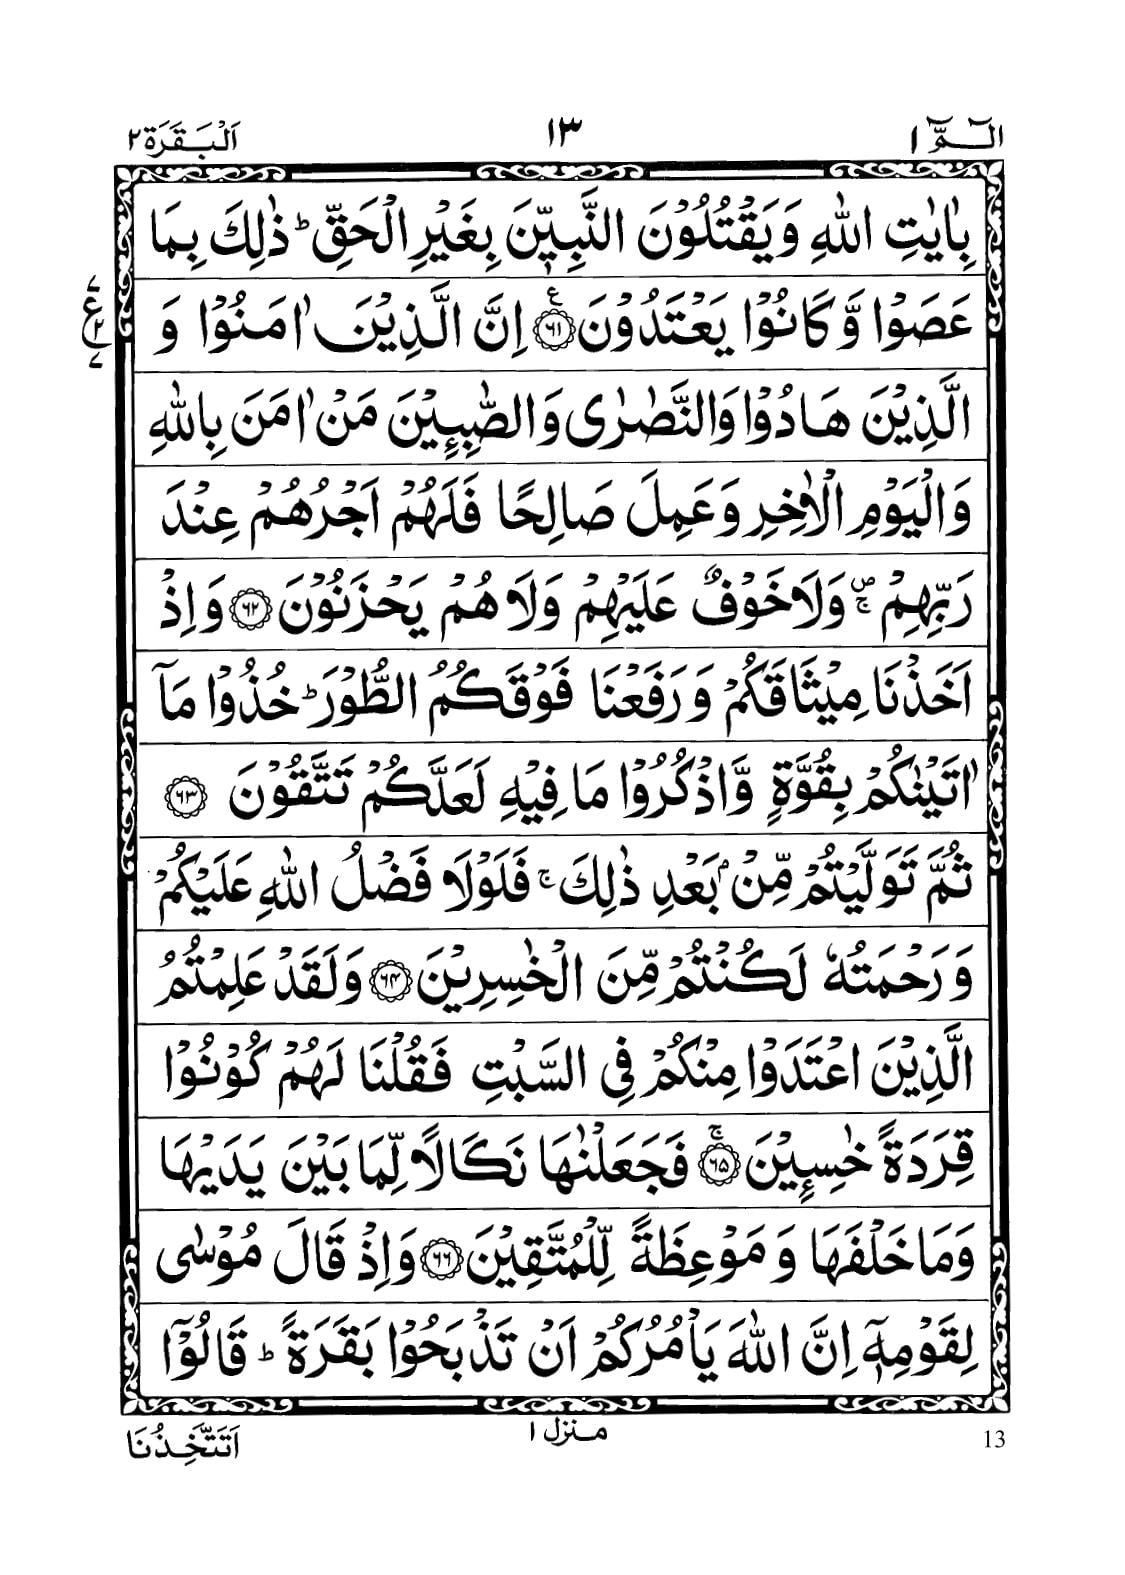 الٓمّٓ ١ ١٣ اَلْبَقَرَة ٢
بِاٰيٰتِ اللّٰهِ وَيَقْتُلُوْنَ النَّبِيّٖنَ بِغَيْرِ الْحَقِّ ؕ ذٰلِكَ بِمَا
عَصَوْا وَّكَانُوْا يَعْتَدُوْنَ ۧ ﴿۶۱﴾ اِنَّ الَّذِيْنَ اٰمَنُوْا وَ
ع ٧ ٢ ٧
الَّذِيْنَ هَادُوْا وَالنَّصٰرٰى وَالصّٰبِـِٕيْنَ مَنْ اٰمَنَ بِاللّٰهِ
وَالْيَوْمِ الْاٰخِرِ وَعَمِلَ صَالِحًا فَلَهُمْ اَجْرُهُمْ عِنْدَ
رَبِّهِمْ ۪ۚ وَلَا خَوْفٌ عَلَيْهِمْ وَلَا هُمْ يَحْزَنُوْنَ ﴿۶۲﴾ وَاِذْ
اَخَذْنَا مِيْثَاقَكُمْ وَرَفَعْنَا فَوْقَكُمُ الطُّوْرَ ؕ خُذُوْا مَاۤ
اٰتَيْنٰكُمْ بِقُوَّةٍ وَّاذْكُرُوْا مَا فِيْهِ لَعَلَّكُمْ تَتَّقُوْنَ ﴿۶۳﴾
ثُمَّ تَوَلَّيْتُمْ مِّنْۢ بَعْدِ ذٰلِكَ ۚ فَلَوْلَا فَضْلُ اللّٰهِ عَلَيْكُمْ
وَرَحْمَتُهٗ لَكُنْتُمْ مِّنَ الْخٰسِرِيْنَ ﴿۶۴﴾ وَلَقَدْ عَلِمْتُمُ
الَّذِيْنَ اعْتَدَوْا مِنْكُمْ فِى السَّبْتِ فَقُلْنَا لَهُمْ كُوْنُوْا
قِرَدَةً خٰسِـِٕيْنَ ۚ ﴿۶۵﴾ فَجَعَلْنٰهَا نَكَالًا لِّمَا بَيْنَ يَدَيْهَا
وَمَا خَلْفَهَا وَمَوْعِظَةً لِّلْمُتَّقِيْنَ ﴿۶۶﴾ وَاِذْ قَالَ مُوْسٰى
لِقَوْمِهٖۤ اِنَّ اللّٰهَ يَاْمُرُكُمْ اَنْ تَذْبَحُوْا بَقَرَةً ؕ قَالُوْۤا
13 منزل ١ اَتَتَّخِذُنَا